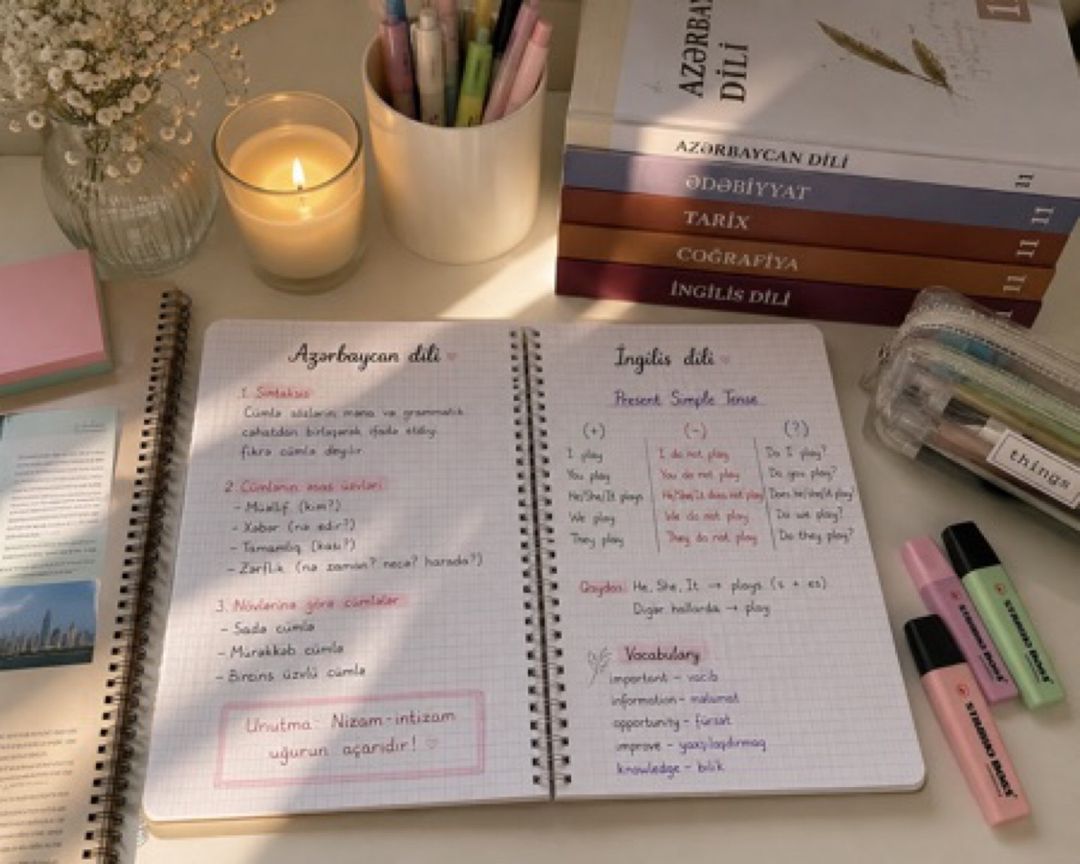 AZƏRBAY
DİLİ
11
AZƏRBAYCAN DİLİ
11
ƏDƏBİYYAT
11
TARİX
11
COĞRAFİYA
11
İNGİLİS DİLİ
11
Azərbaycan dili
1. Sintaksis
Cümlə sözlərin məna və qrammatik
cəhətdən birləşərək ifadə etdiyi
fikrə cümlə deyilir
2. Cümlənin əsas üzvləri
- (kim?)
- Xəbər (nə edir?)
- Tamamlıq
- Zərflik (nə zaman? necə? harada?)
3. Növlərinə görə cümlələr
- Sadə cümlə
- Mürəkkəb cümlə
- üzvlü cümlə
Unutma: Nizam-intizam
uğurun açarıdır!
İngilis dili
Present Simple Tense
(+) (-) (?)
I play I do not play Do I play?
You play You do not play Do you play?
He/She/It plays He/She/It does not play Does he/she/it play?
We play We do not play Do we play?
They play They do not play Do they play?
Qaydaı: He, She, It → plays (s + es)
Digər hallarda → play
Vocabulary
important - vacib
information - məlumat
opportunity - fürsət
improve - yaxşılaşdırmaq
knowledge - bilik
things
STABILO BOSS
STABILO BOSS
STABILO BOSS